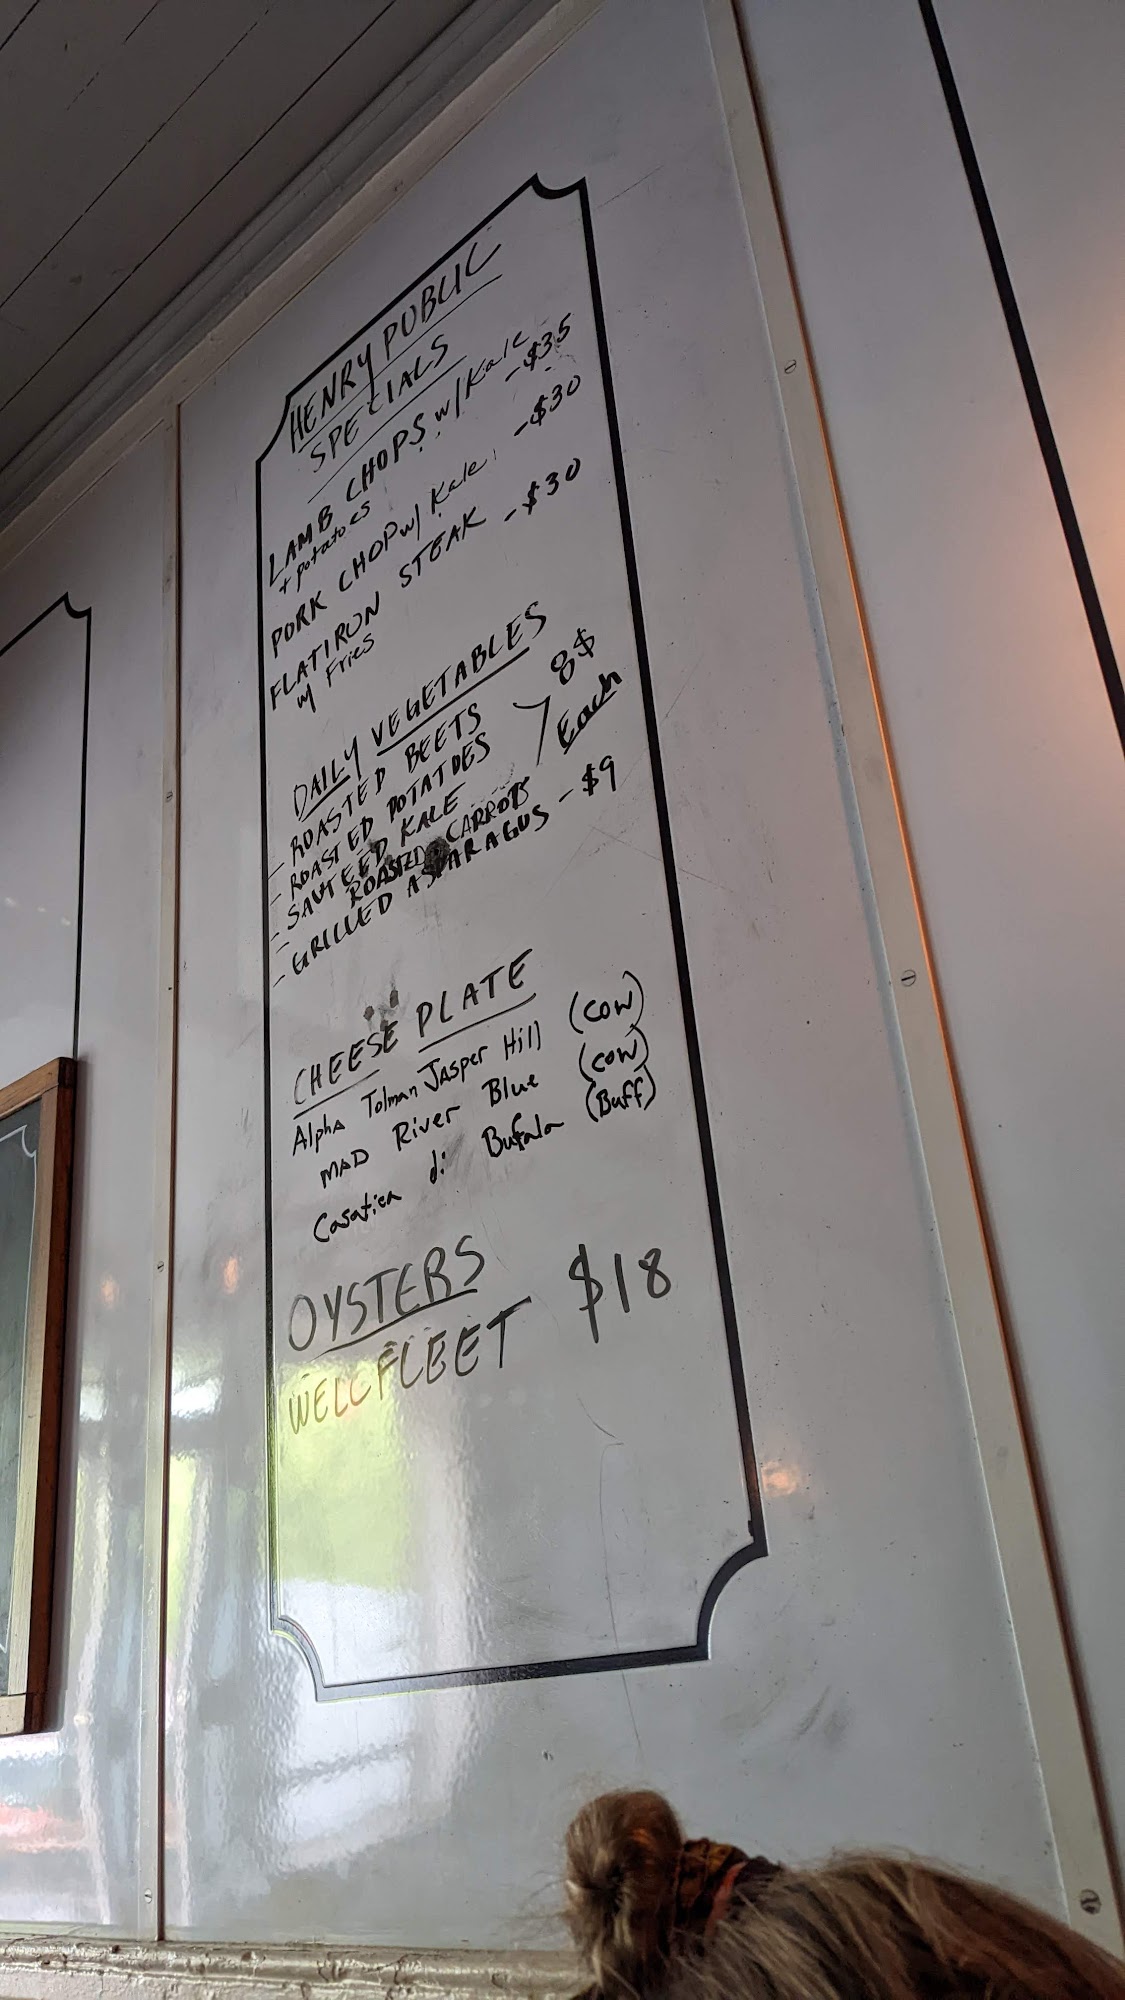 HENRY PUBLIC
SPECIALS
LAMB CHOPS w/ Kale -$35
+ potatoes
PORK CHOP w/ Kale -$30
FLATIRON STEAK -$30
w/ Fries
DAILY VEGETABLES
- ROASTED BEETS
- ROASTED POTATOES 8$
- SAUTEED KALE Each
- ROASTED CARROTS
- GRILLED ASPARAGUS -$9
CHEESE PLATE
Alpha Tolman Jasper Hill (COW)
MAD River Blue (COW)
Casatica di Bufala (Buff)
OYSTERS
WELLFLEET $18